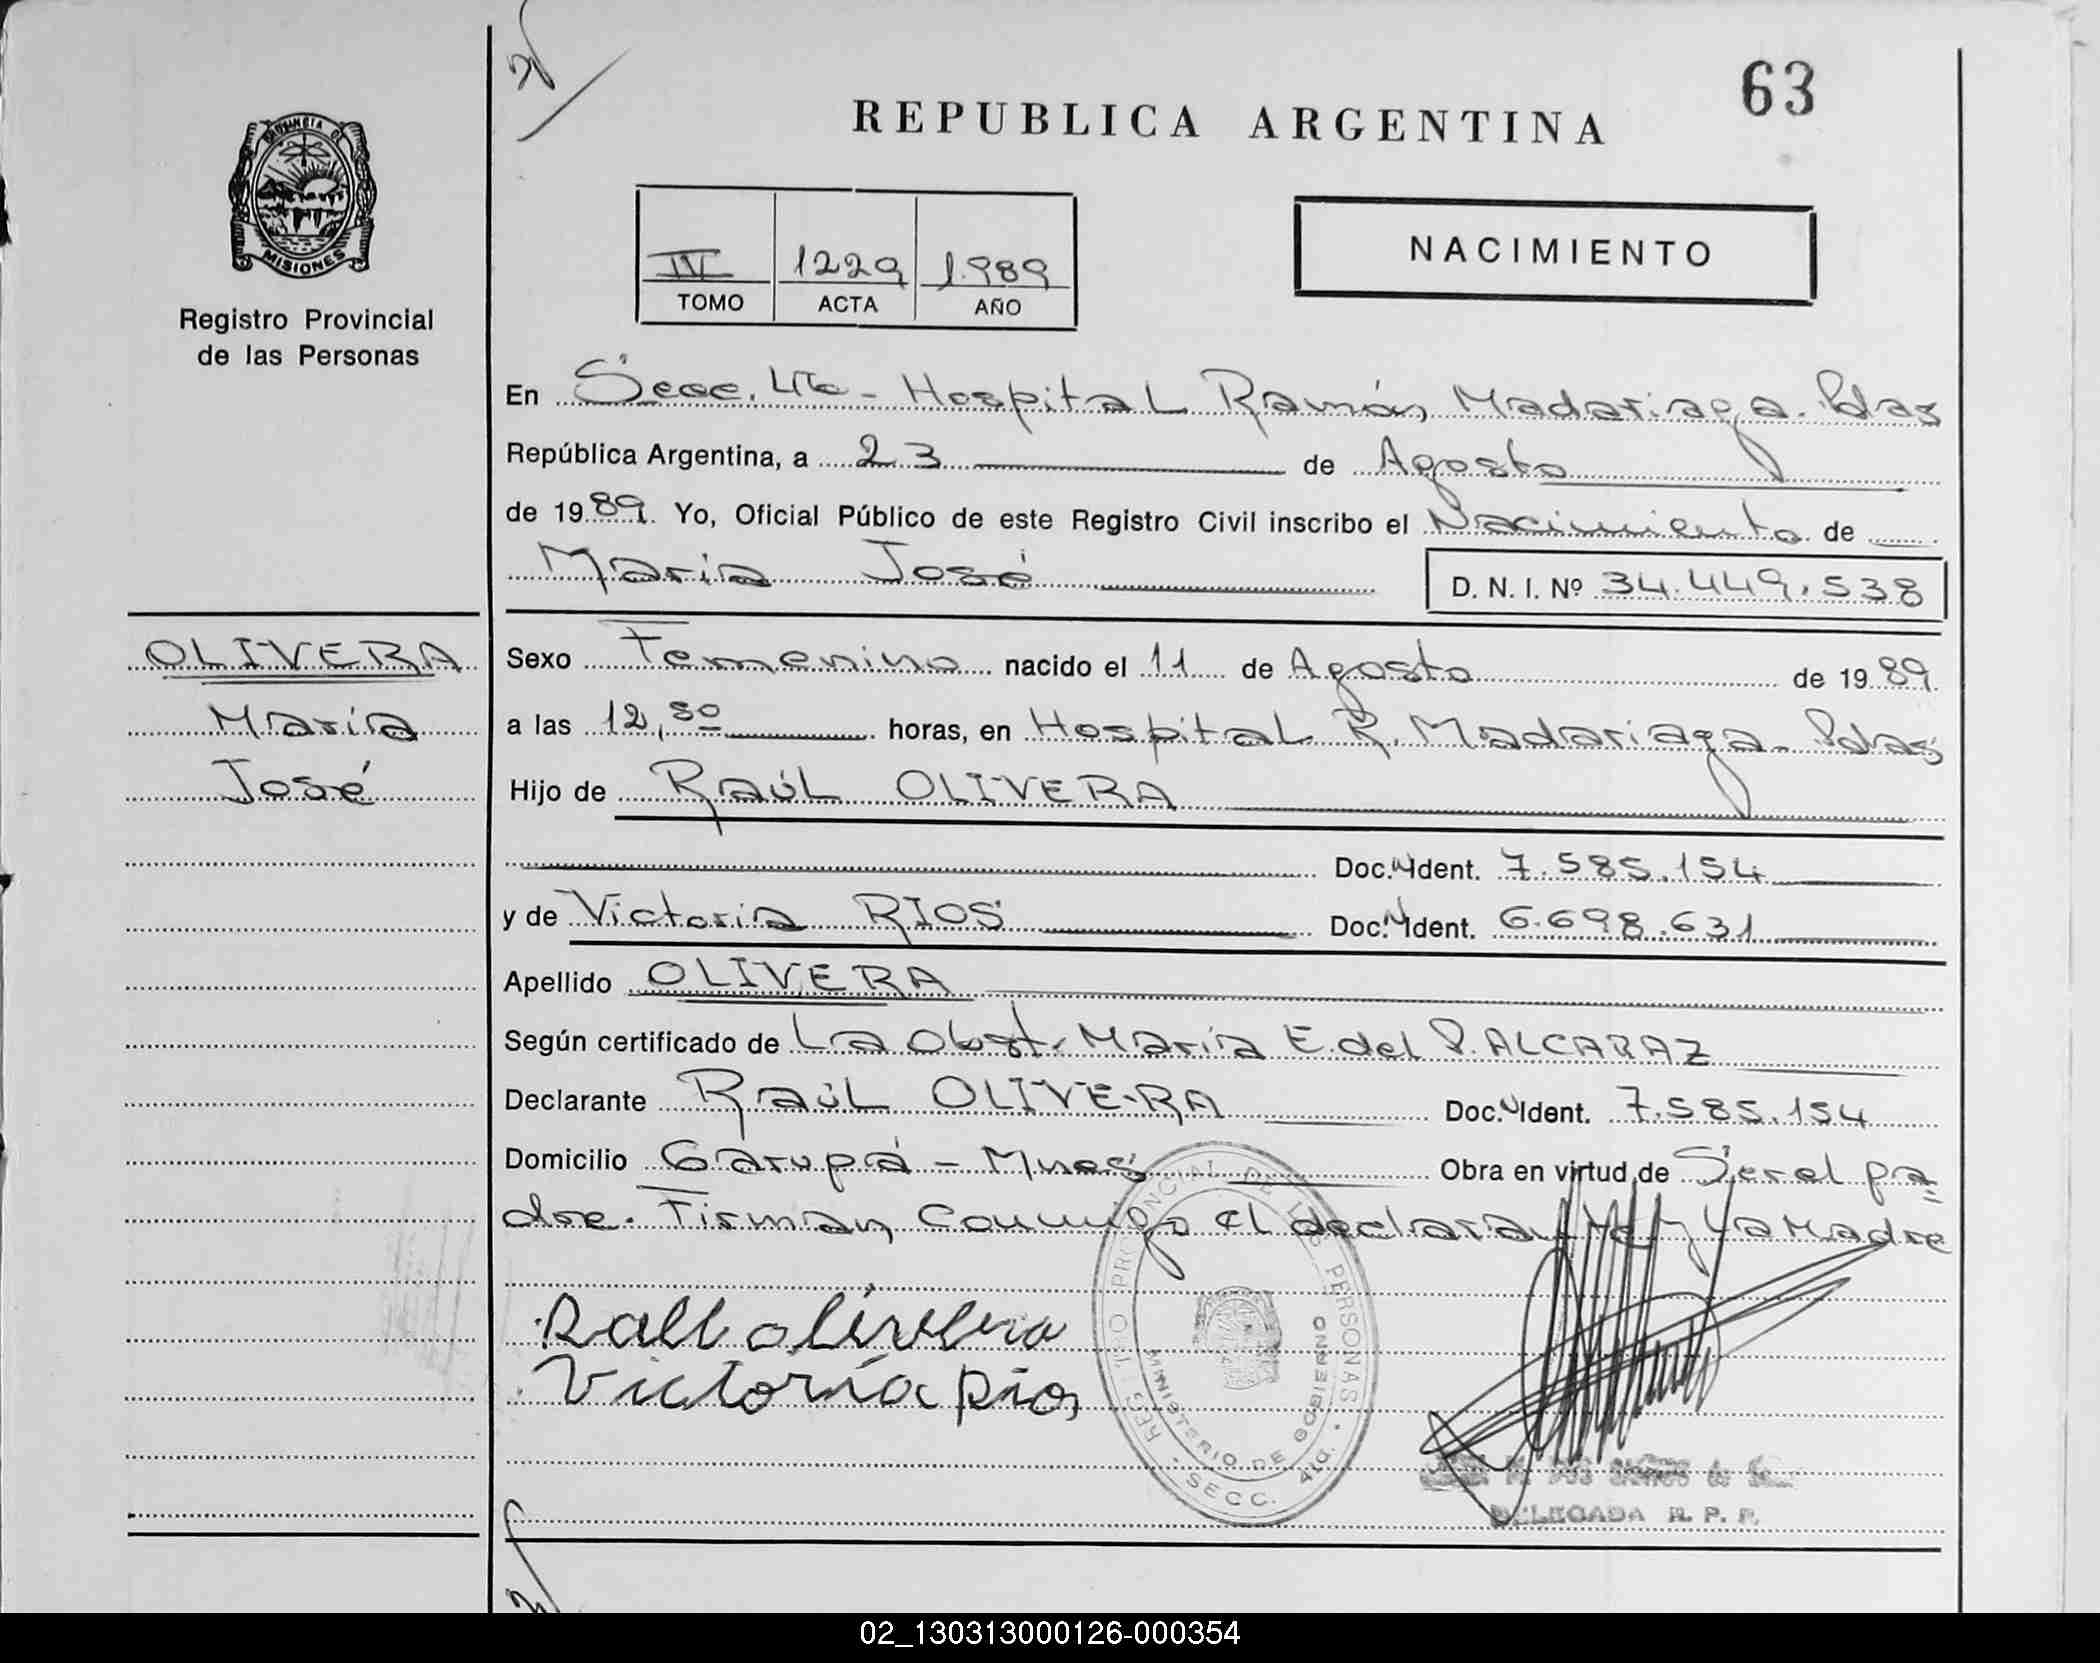 63
REPUBLICA ARGENTINA
PROVINCIA DE
MISIONES
Registro Provincial
de las Personas
IV 1229 1989
TOMO ACTA AÑO
NACIMIENTO
En Secc. 4ta - Hospital Ramón Madariaga. Pdas
República Argentina, a 23 de Agosto
de 1989. Yo, Oficial Público de este Registro Civil inscribo el Nacimiento de
María José D. N. I. Nº 34.449.538
OLIVERA
María
José
Sexo Femenino nacido el 11 de Agosto de 1989
a las 12,30 horas, en Hospital R. Madariaga - Pdas
Hijo de Raúl OLIVERA
Doc. Ident. 7.585.154
y de Victoria RIOS Doc. Ident. 6.698.631
Apellido OLIVERA
Según certificado de La Obst. María E. del P. ALCARAZ
Declarante Raúl OLIVERA Doc. Ident. 7.585.154
Domicilio Garupá - Mnes Obra en virtud de Ser el pa-
dre. Firman conmigo el declarante y La Madre
Rall olivera
Victoria Rios
REGISTRO PROVINCIAL DE LAS PERSONAS
MINISTERIO DE GOBIERNO
SECC. 4ta.
DELEGADA R. P. P.
02_130313000126-000354